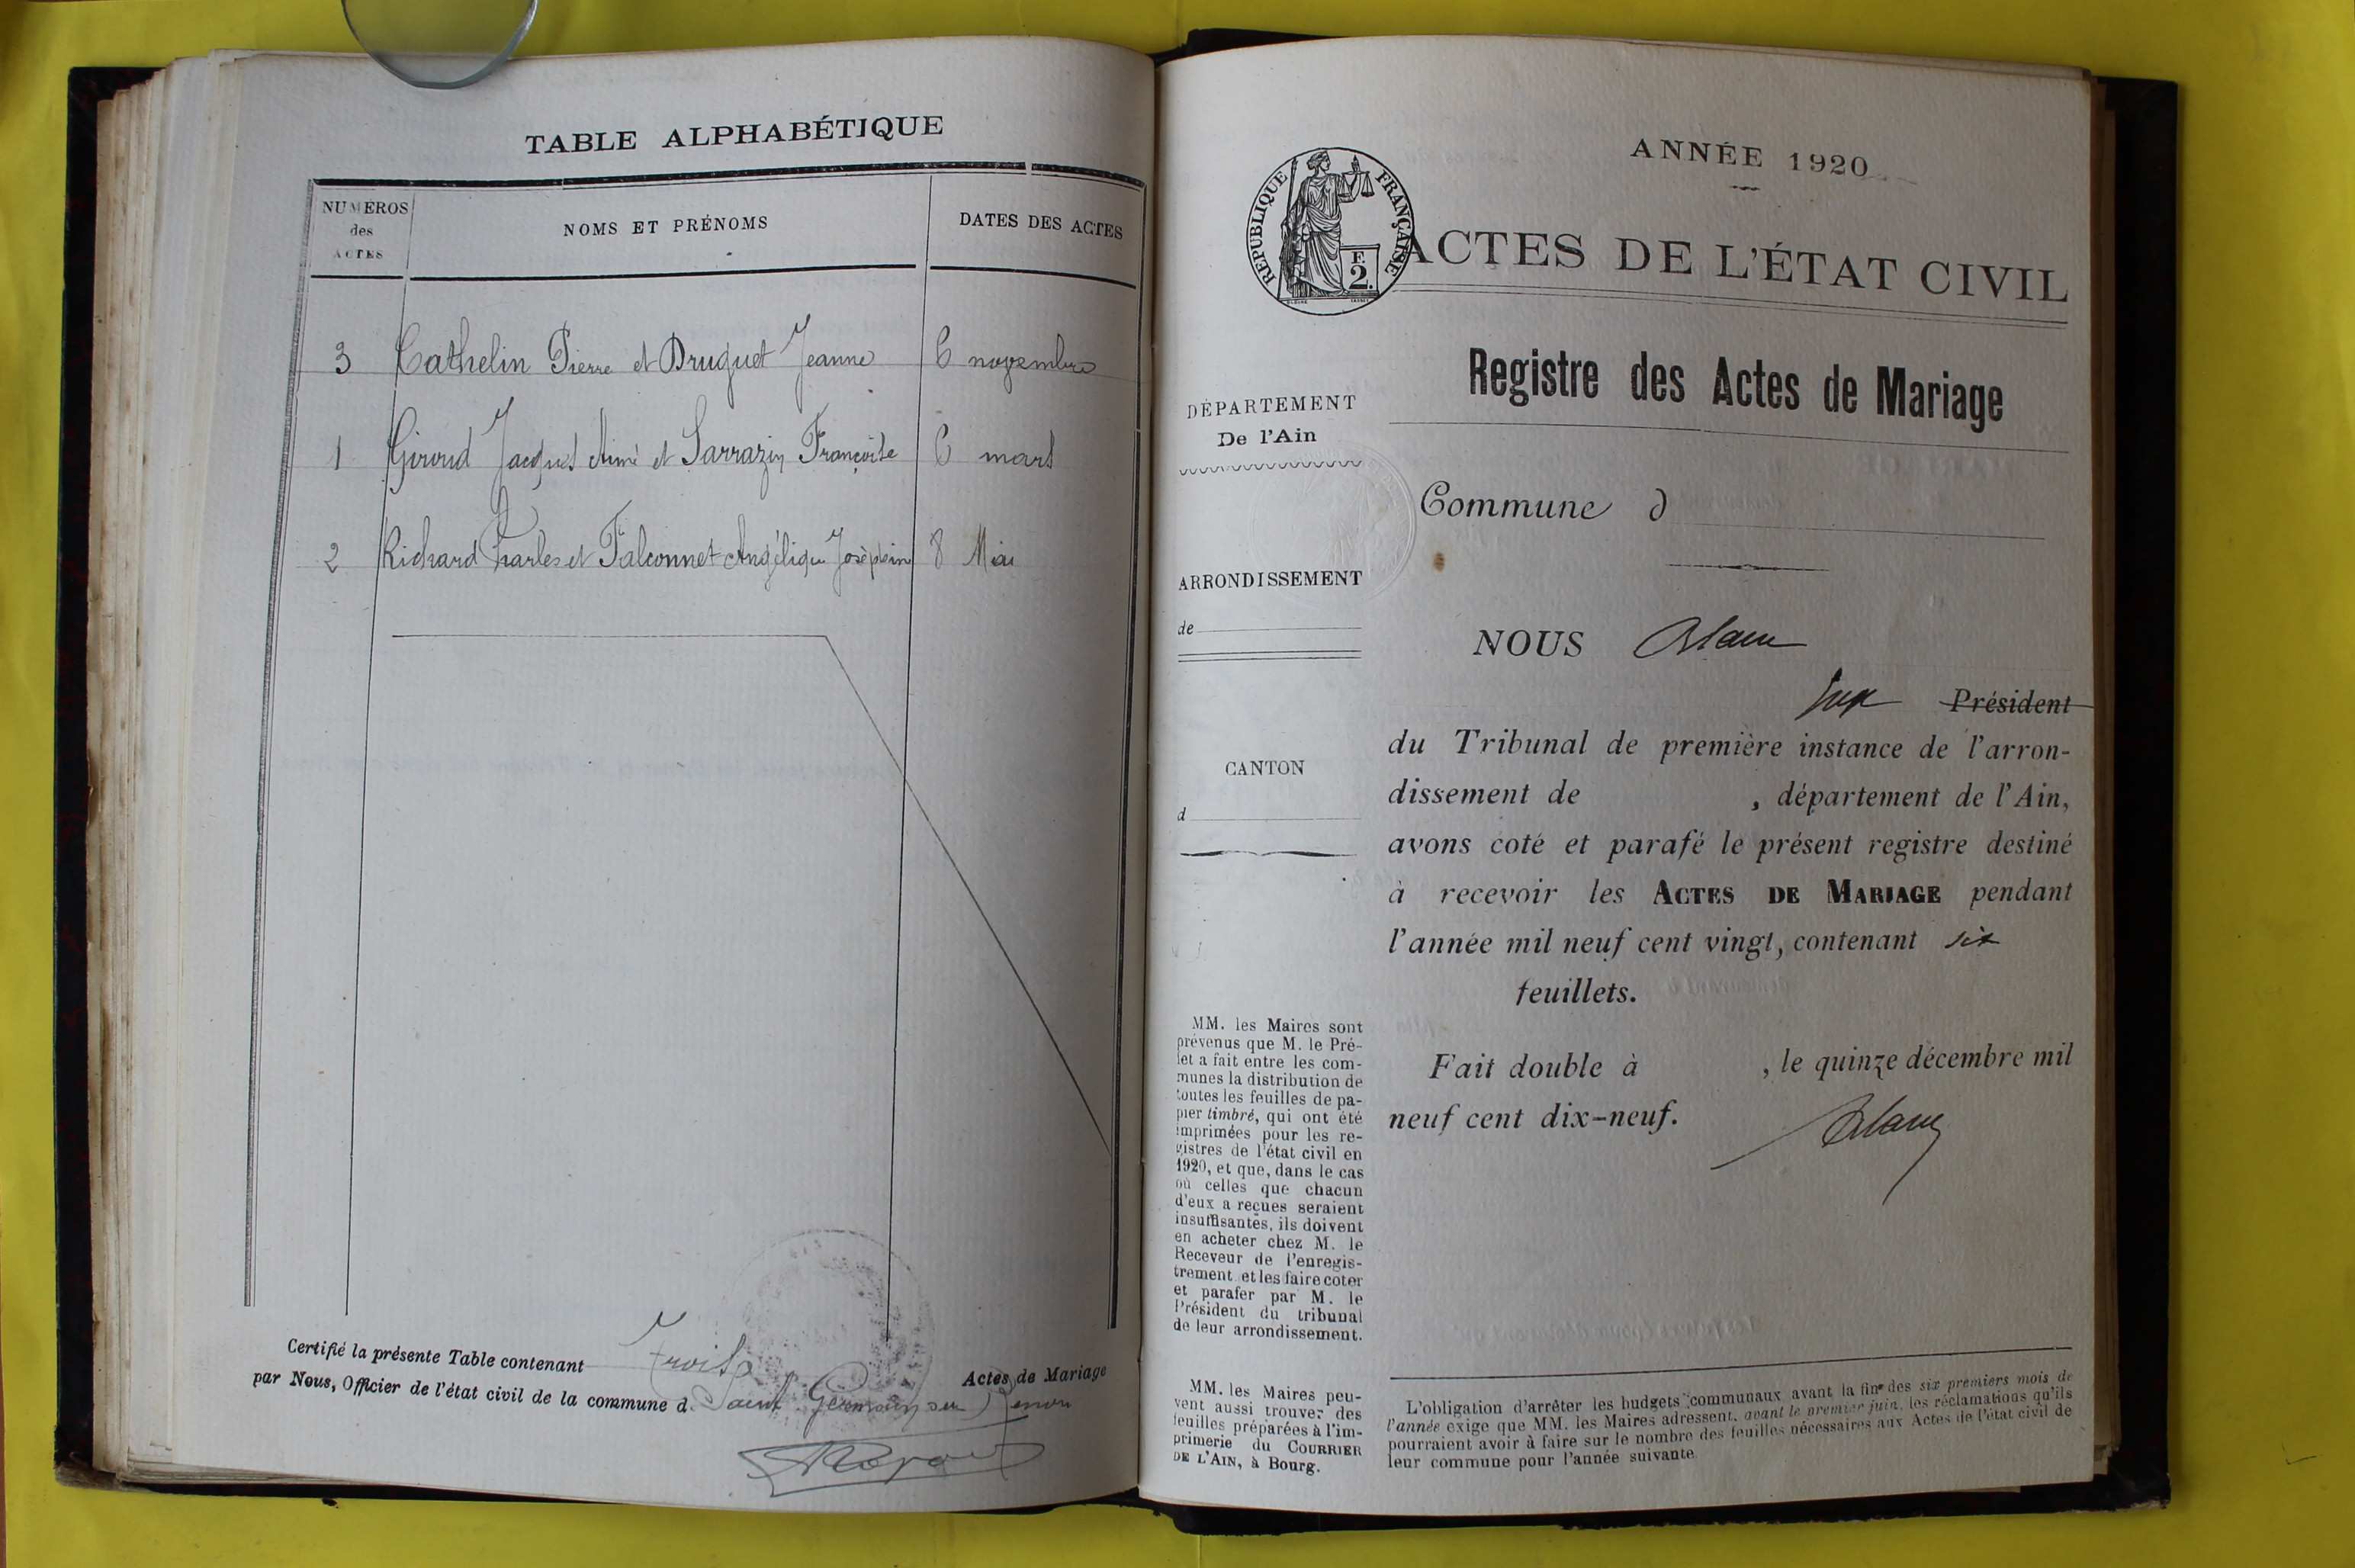 TABLE ALPHABÉTIQUE
NUMÉROS
des
ACTES
NOMS ET PRÉNOMS
DATES DES ACTES
3 Cathelin Pierre et Druguet Jeanne 6 novembre
1 Giroud Jacques Aimé et Sarrazin Françoise 6 mars
2 Richard Charles et Falconnet Angélique Josèphine 8 Mai
Certifié la présente Table contenant Trois Actes de Mariage
par Nous, Officier de l'état civil de la commune d Saint Germain sur Renon
ANNÉE 1920
RÉPUBLIQUE FRANÇAISE
F.
2.
ACTES DE L'ÉTAT CIVIL
Registre des Actes de Mariage
DÉPARTEMENT
De l'Ain
Commune d
ARRONDISSEMENT
de
CANTON
d
NOUS
Juge Président
du Tribunal de première instance de l'arron-
dissement de , département de l'Ain,
avons coté et parafé le présent registre destiné
à recevoir les ACTES DE MARIAGE pendant
l'année mil neuf cent vingt, contenant six
feuillets.
Fait double à , le quinze décembre mil
neuf cent dix-neuf.
MM. les Maires sont
prévenus que M. le Pré-
fet a fait entre les com-
munes la distribution de
toutes les feuilles de pa-
pier timbré, qui ont été
imprimées pour les re-
gistres de l'état civil en
1920, et que, dans le cas
où celles que chacun
d'eux a reçues seraient
insuffisantes, ils doivent
en acheter chez M. le
Receveur de l'enregis-
trement et les faire coter
et parafer par M. le
Président du tribunal
de leur arrondissement.
MM. les Maires peu-
vent aussi trouver des
feuilles préparées à l'im-
primerie du COURRIER
DE L'AIN, à Bourg.
L'obligation d'arrêter les budgets communaux avant la fin des six premiers mois de
l'année exige que MM. les Maires adressent, avant le premier juin, les réclamations qu'ils
pourraient avoir à faire sur le nombre des feuilles nécessaires aux Actes de l'état civil de
leur commune pour l'année suivante